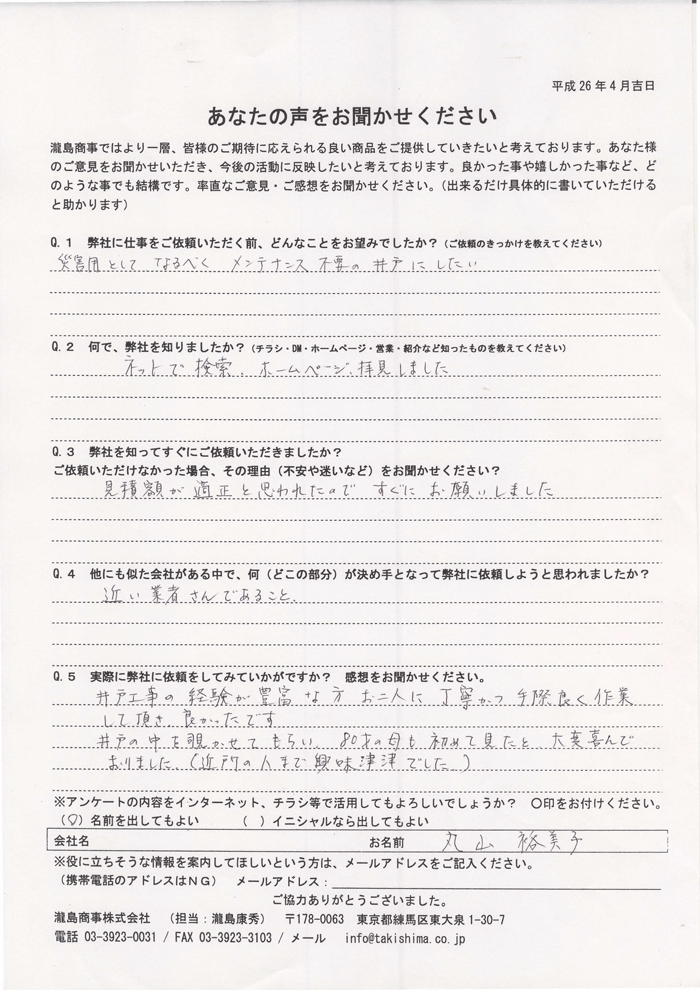 平成26年4月吉日
あなたの声をお聞かせください
瀧島商事ではより一層、皆様のご期待に応えられる良い商品をご提供していきたいと考えております。あなた様
のご意見をお聞かせいただき、今後の活動に反映したいと考えております。良かった事や嬉しかった事など、ど
のような事でも結構です。率直なご意見・ご感想をお聞かせください。(出来るだけ具体的に書いていただける
と助かります)
Q.1 弊社に仕事をご依頼いただく前、どんなことをお望みでしたか?(ご依頼のきっかけを教えてください)
災害用として なるべく メンテナンス 不要の 井戸に したい
Q.2 何で、弊社を知りましたか?(チラシ・DM・ホームページ・営業・紹介など知ったものを教えてください)
ネットで 検索、ホームページ、拝見しました
Q.3 弊社を知ってすぐにご依頼いただきましたか?
ご依頼いただけなかった場合、その理由(不安や迷いなど)をお聞かせください?
見積額が 適正と思われたので すぐに お願いしました
Q.4 他にも似た会社がある中で、何(どこの部分)が決め手となって弊社に依頼しようと思われましたか?
近い業者さんであること、
Q.5 実際に弊社に依頼をしてみていかがですか? 感想をお聞かせください。
井戸工事の 経験が 豊富 な方 お二人に 丁寧かつ 手際良く作業
して頂き、良かったです
井戸の中を覗かせて もらい、80才の母も 初めて見たと 大変喜んで
おりました、(近所の人まで興味津津でした)
※アンケートの内容をインターネット、チラシ等で活用してもよろしいでしょうか? 〇印をお付けください。
(○)名前を出してもよい ( )イニシャルなら出してもよい
会社名 お名前 丸山 裕美子
※役に立ちそうな情報を案内してほしいという方は、メールアドレスをご記入ください。
(携帯電話のアドレスはNG) メールアドレス:
ご協力ありがとうございました。
瀧島商事株式会社 (担当:瀧島康秀) 〒178-0063 東京都練馬区東大泉1-30-7
電話 03-3923-0031 / FAX 03-3923-3103 / メール info@takishima.co.jp